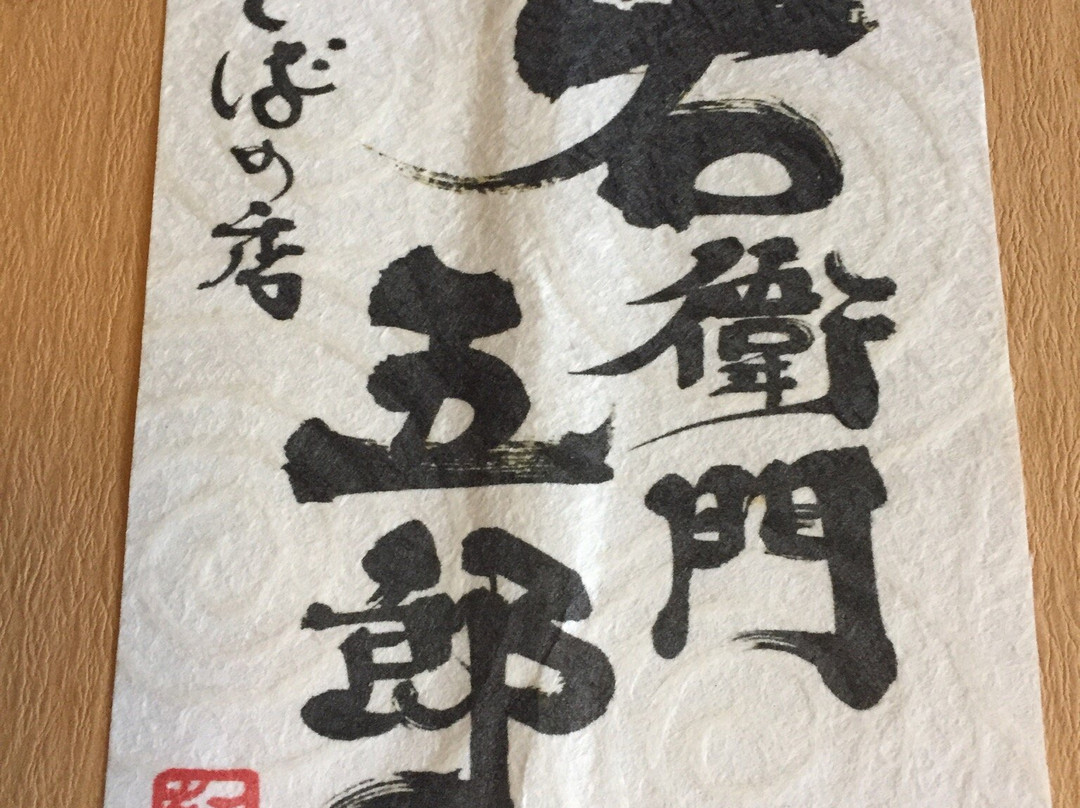 右衛門
五郎
そばの店